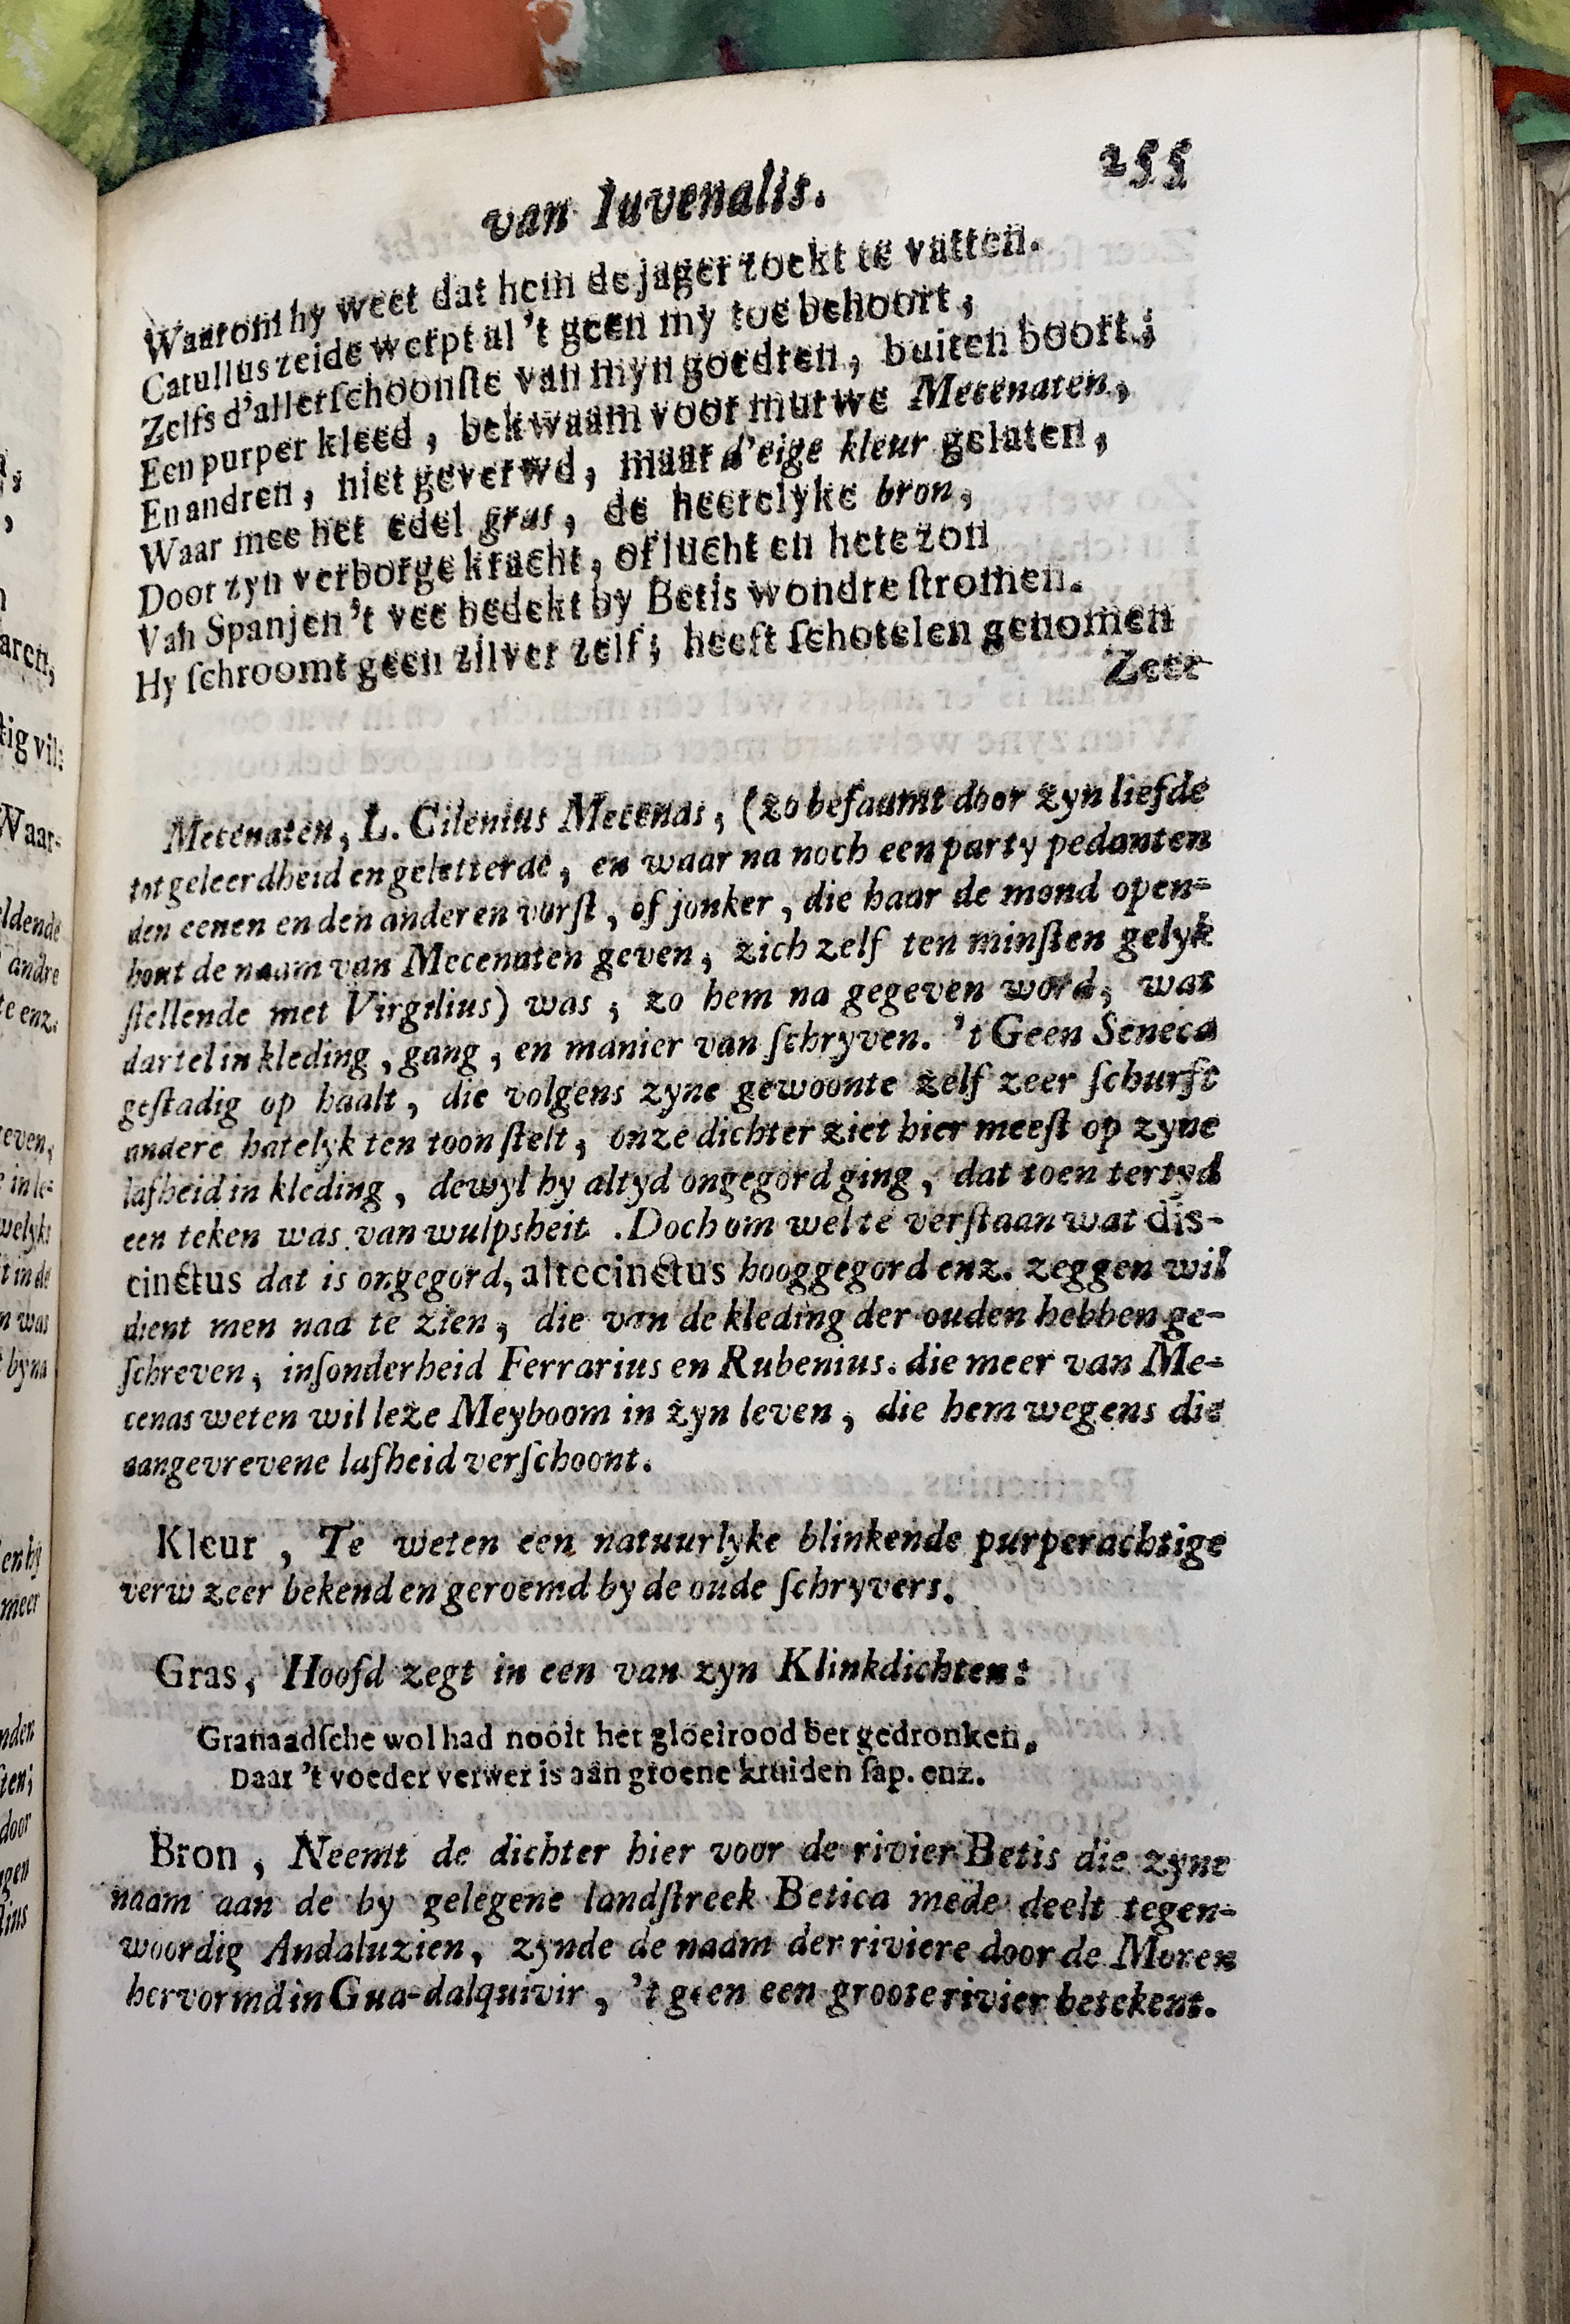 van Iuvenalis.
255
Waarom hy weet dat hem de jager zoekt te vatten.
Catullus zeide werpt al 't geen my toe behoort;
Zelfs d'allerſchoonſte van myn goedren, buiten boort;
Een purper kleed, bekwaam voor murwe Mecenaten,
En andren, niet geverwd, maar d'eige kleur gelaten,
Waar mee het edel gras, de heerelyke bron,
Door zyn verborge kracht, of lucht en hete zon
Van Spanjen 't vee bedekt by Betis wondre ſtromen.
Hy ſchroomt geen zilver zelf; heeft ſchotelen genomen
Zeer
Mecenaten, L. Cilenius Mecenas, (zo befaamt door zyn liefde
tot geleerdheid en geletterde, en waar na noch een party pedanten
den eenen en den anderen vorſt, of jonker, die haar de mond open-
hout de naam van Mecenaten geven, zich zelf ten minſten gelyk
ſtellende met Virgilius) was, zo hem na gegeven word, wat
dartel in kleding, gang, en manier van ſchryven. 't Geen Seneca
geſtadig op haalt, die volgens zyne gewoonte zelf zeer ſchurft
andere hatelyk ten toon ſtelt, onze dichter ziet hier meeſt op zyne
lafheid in kleding, dewyl hy altyd ongegord ging, dat toen tertyd
een teken was van wulpsheit. Doch om wel te verſtaan wat dis-
cinctus dat is ongegord, altecinctus hooggegord enz. zeggen wil
dient men naa te zien, die van de kleding der ouden hebben ge-
ſchreven, inſonderheid Ferrarius en Rubenius. die meer van Me-
cenas weten wil leze Meyboom in zyn leven, die hem wegens die
aangevrevene lafheid verſchoont.
Kleur, Te weten een natuurlyke blinkende purperachtige
verw zeer bekend en geroemd by de oude ſchryvers.
Gras, Hoofd zegt in een van zyn Klinkdichten:
Granaadſche wol had nooit het gloeirood bet gedronken,
Daar 't voeder verwer is aan groene kruiden ſap. enz.
Bron, Neemt de dichter hier voor de rivier Betis die zyne
naam aan de by gelegene landſtreek Betica mede deelt tegen-
woordig Andaluzien, zynde de naam der riviere door de Moren
hervormd in Gua-dalquivir, 't geen een groote rivier betekent.